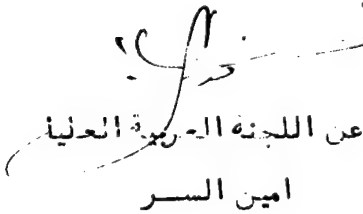 عن اللجنة العربية العليا
امين السر